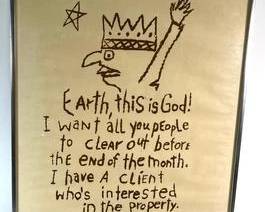 Earth, this is God!
I want all you people
to clear out before
the end of the month.
I have a client
who's interested
in the property.